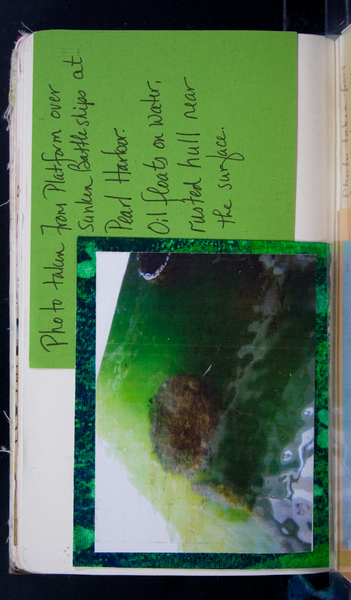 Photo taken from Platform over
Sunken Battleships at
Pearl Harbor.
Oil floats on water,
rusted hull near
the surface.